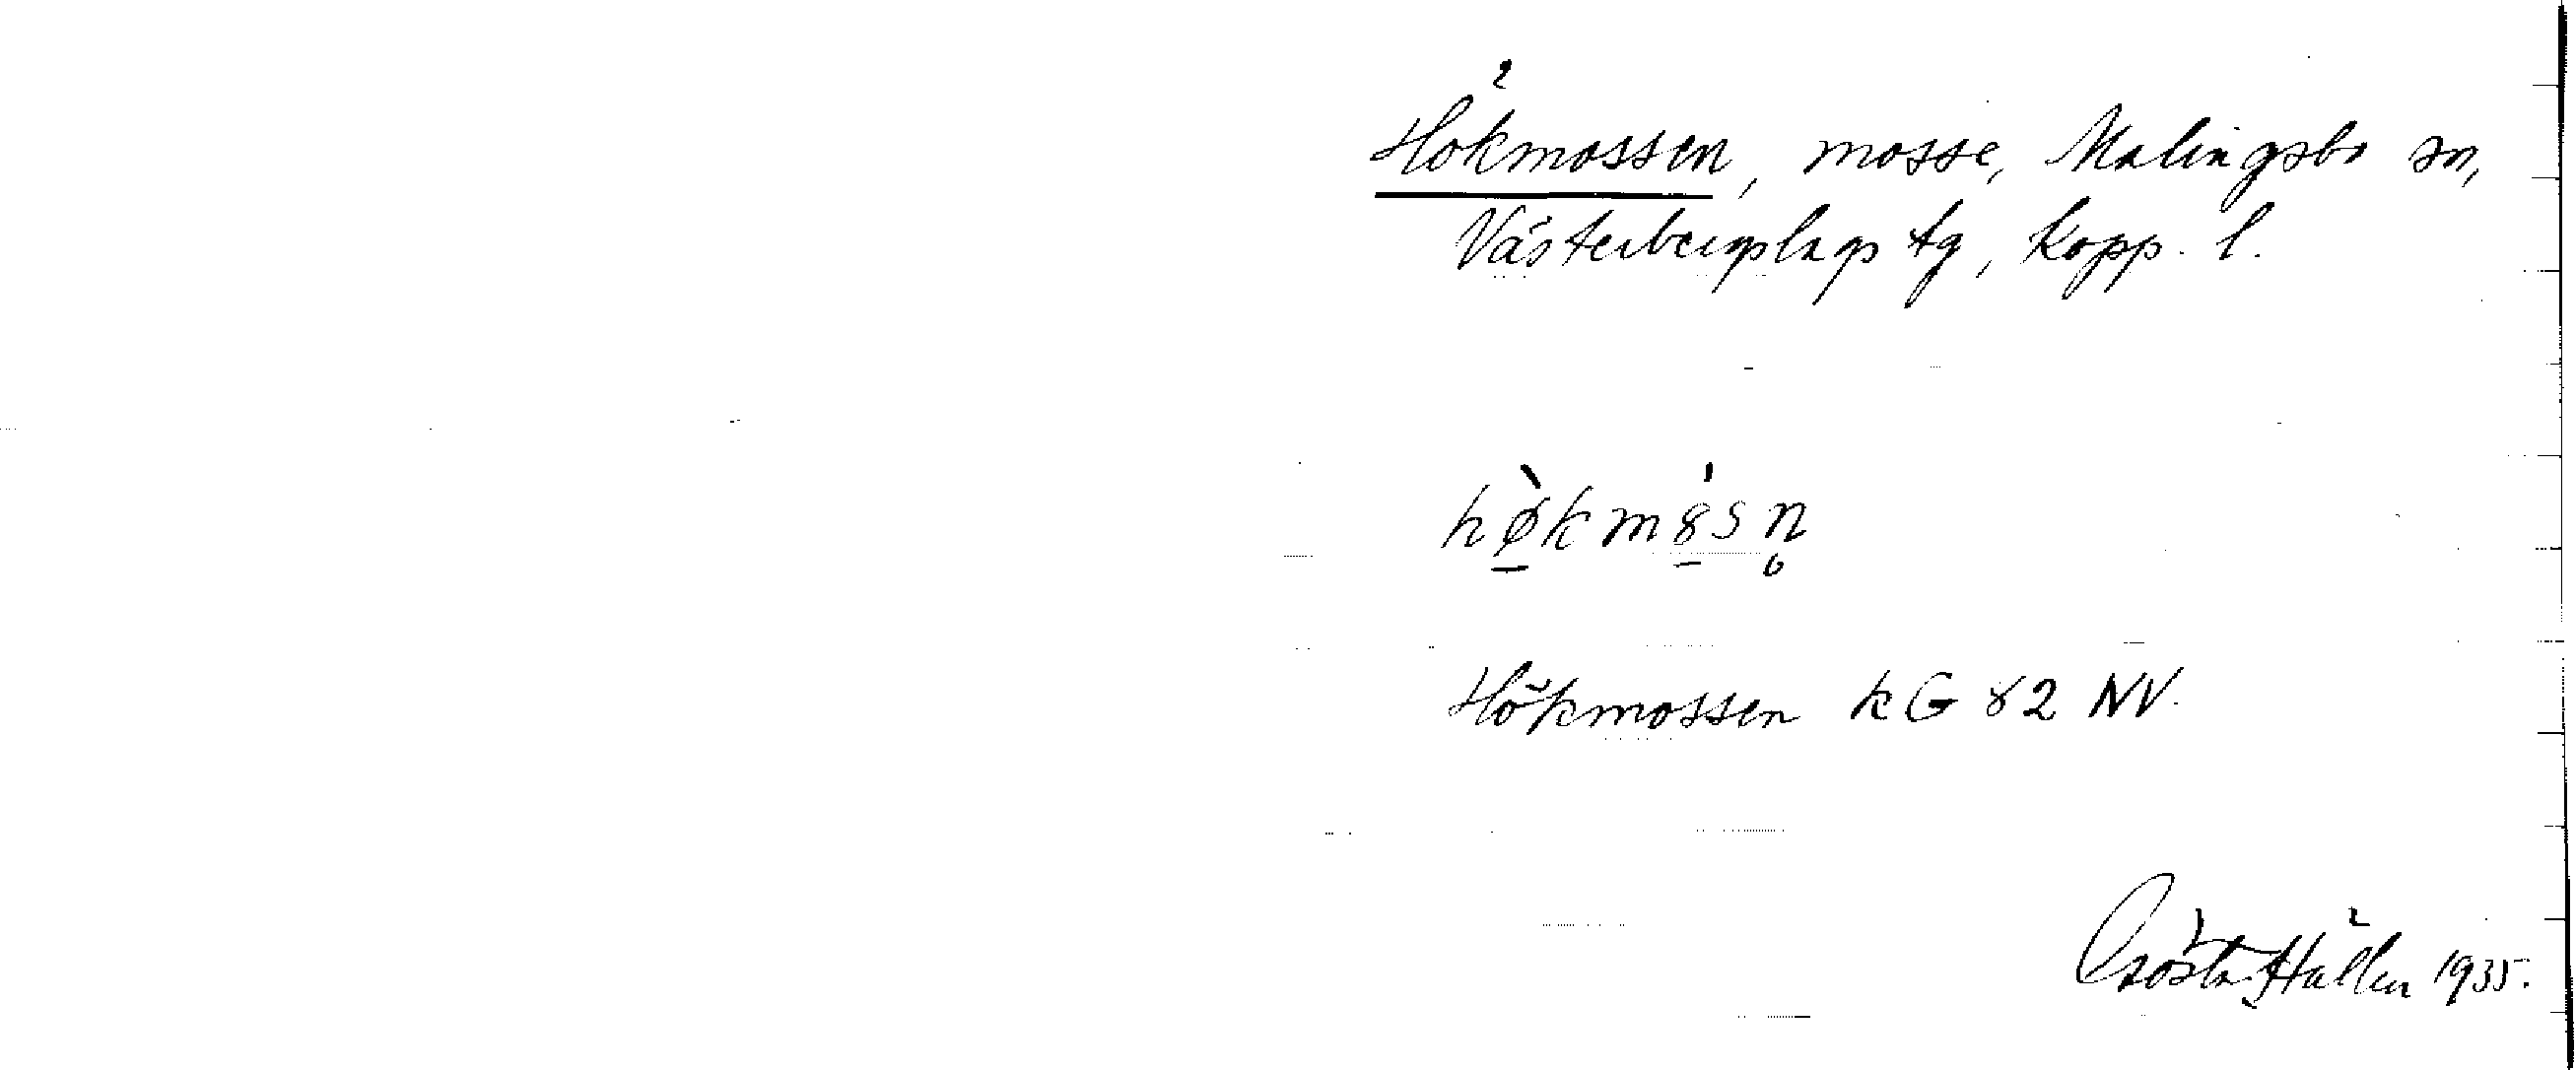 Hökmossen, mosse, Malingsbo sn,
Västerbergslags tg, Kopp. l.
hø̀kmȣ́sn̥
Hökmossen kG 82 NV.
Gösta Hallén 1935.